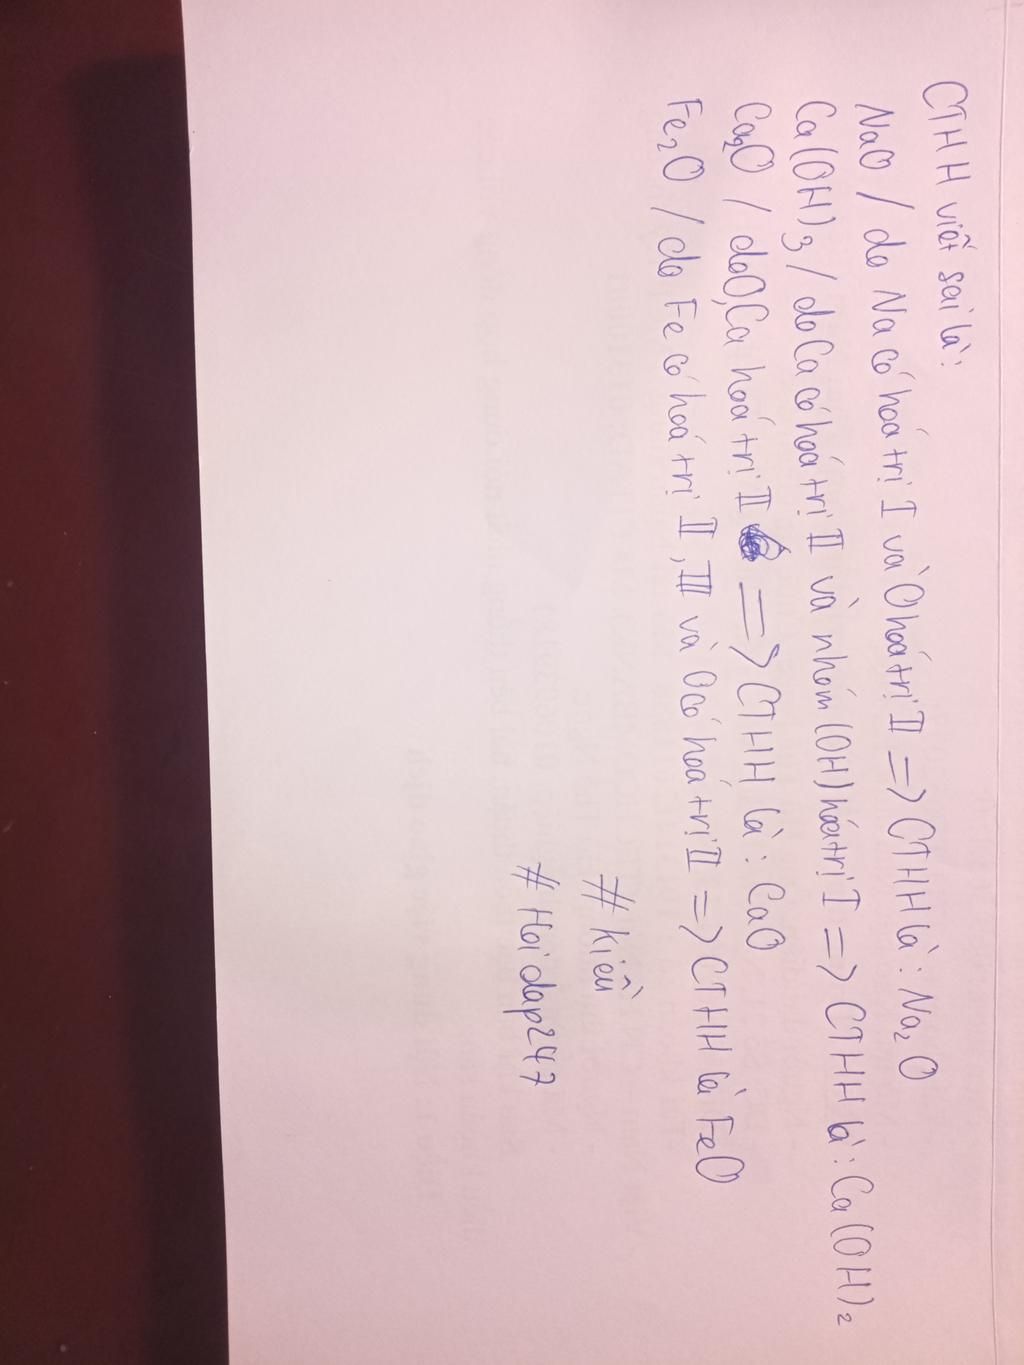 CTHH viết sai là:
NaO / do Na có hoá trị I và O hoá trị II => CTHH là: Na₂O
Ca(OH)₃ / do Ca có hoá trị II và nhóm (OH) hoá trị I => CTHH là: Ca(OH)₂
Ca₂O / do O,Ca hoá trị II => CTHH là: CaO
Fe₂O / do Fe có hoá trị II, III và O có hoá trị II => CTHH là FeO
#kiều
#Hoidap247